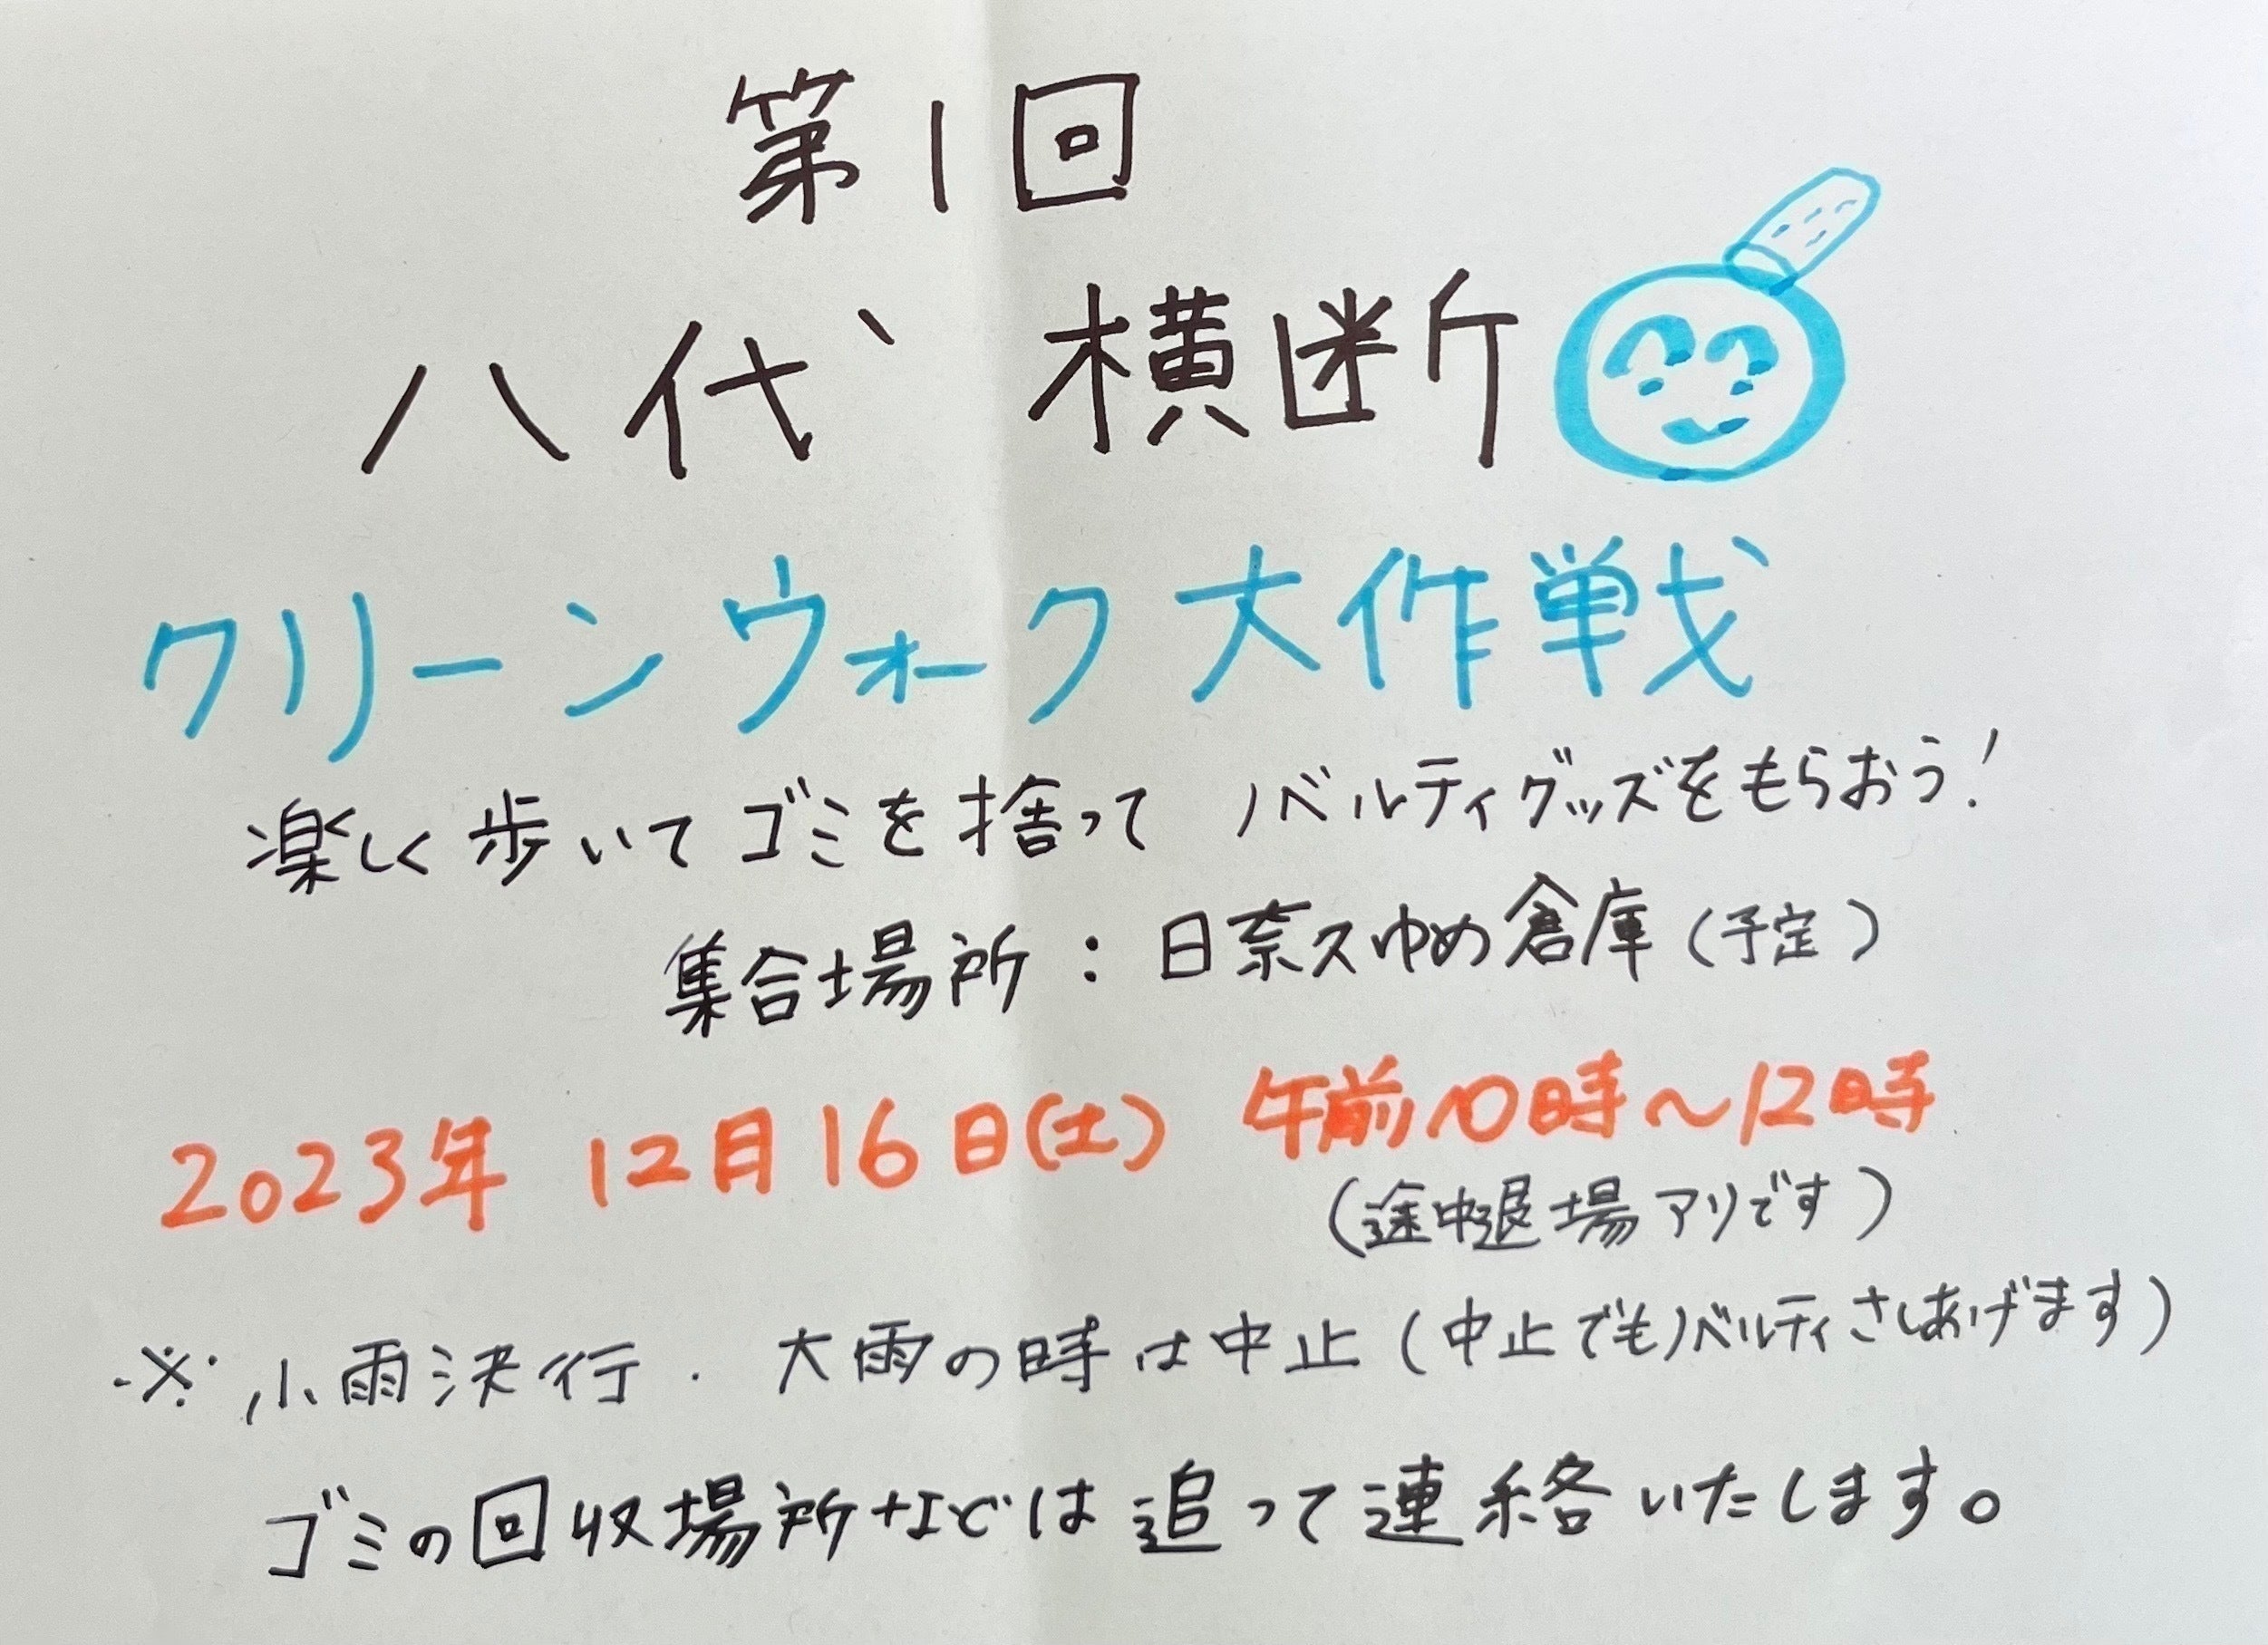 第1回
八代 横断
クリーンウォーク大作戦
楽しく歩いてゴミを捨って ノベルティグッズをもらおう!
集合場所:日奈久ゆめ倉庫(予定)
2023年 12月16日(土) 午前10時～12時
(途中退場アリです)
※小雨決行. 大雨の時は中止(中止でもノベルティさしあげます)
ゴミの回収場所などは追って連絡いたします。